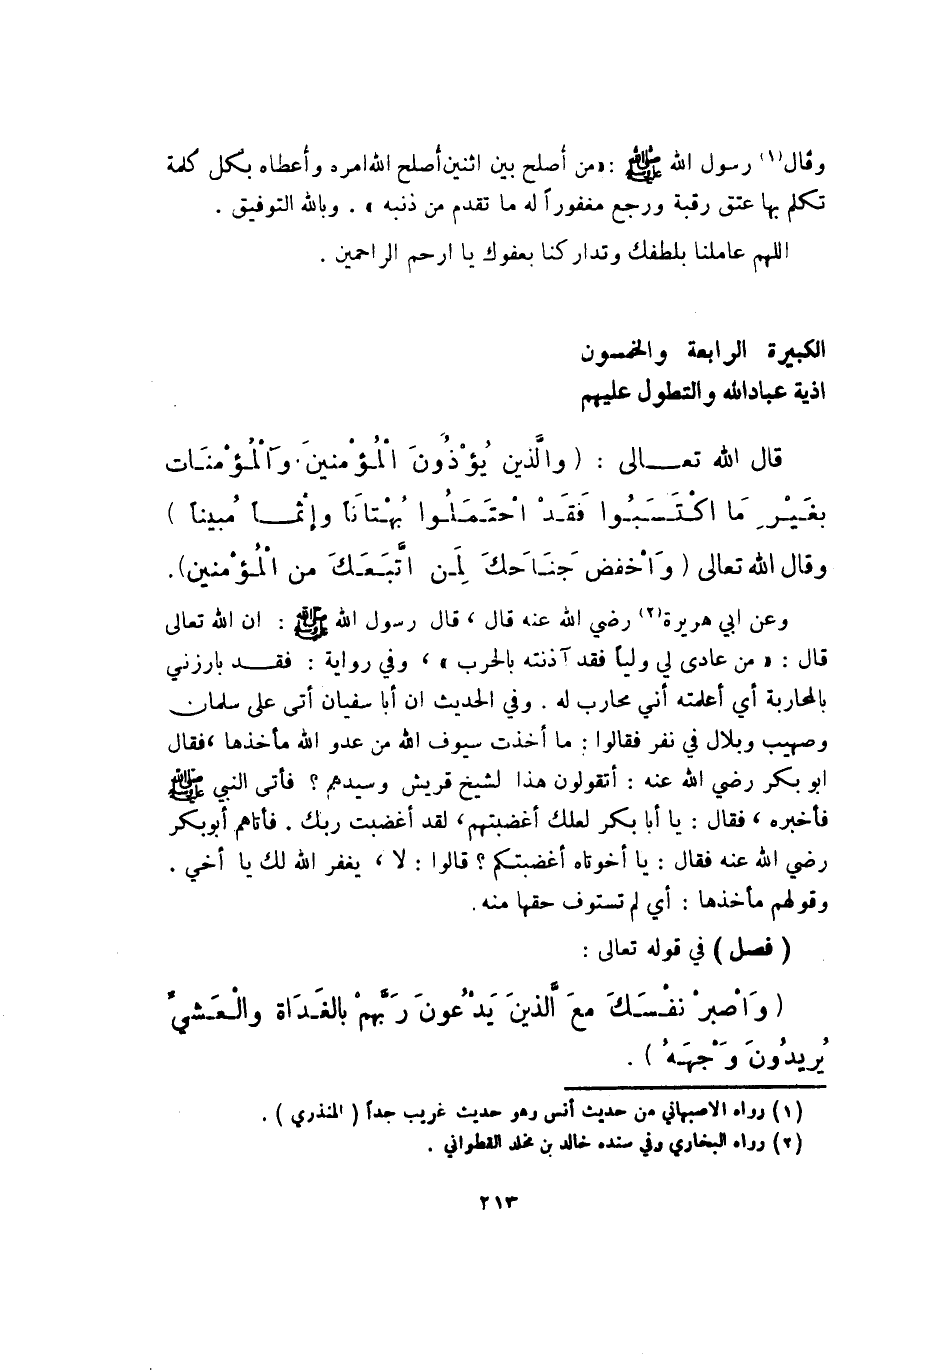 وقال(١) رسول الله ﷺ : «من أصلح بين اثنين أصلح الله امره وأعطاه بكل كلمة
تكلم بها عتق رقبة ورجع مغفوراً له ما تقدم من ذنبه » . وبالله التوفيق .
اللهم عاملنا بلطفك وتداركنا بعفوك يا ارحم الراحمين .
الكبيرة الرابعة والخمسون
اذية عبادالله والتطول عليهم
قال الله تعــالى : ( والَّذين يُؤْذُونَ الْمُؤْمنينَ وَالْمُؤْمنَات
بغَيْرِ مَا اكْتَسَبُوا فَقَدْ احْتَمَلُوا بُهْتَانَاً وإثْمــاً مُبيناً )
وقال الله تعالى ( وَاْخفض جَنَاحكَ لمَن اتَّبَعَكَ من الْمُؤْمنين).
وعن ابي هريرة(٢) رضي الله عنه قال ، قال رسول الله ﷺ : ان الله تعالى
قال : « من عادى لي ولياً فقد آذنته بالحرب » ، وفي رواية : فقــد بارزني
بالمحاربة أي أعلمته أني محارب له . وفي الحديث ان أبا سفيان أتى على سلمان
وصهيب وبلال في نفر فقالوا : ما أخذت سيوف الله من عدو الله مأخذها ، فقال
ابو بكر رضي الله عنه : أتقولون هذا لشيخ قريش وسيدهم ؟ فأتى النبي ﷺ
فأخبره ، فقال : يا أبا بكر لعلك أغضبتهم، لقد أغضبت ربك . فأتاهم أبوبكر
رضي الله عنه فقال : يا أخوتاه أغضبتكم ؟ قالوا : لا ، يغفر الله لك يا أخي .
وقولهم مأخذها : أي لم تستوف حقها منه .
( فصل ) في قوله تعالى :
( وَاْصبرْ نفْسَكَ معَ الَّذينَ يَدْعُونَ رَبَّهمْ بالغَدَاة والْعَشيِّ
يُريدُونَ وَجْهَهُ ) .
(١) رواه الاصبهاني من حديث أنس وهو حديث غريب جداً ( المنذري ) .
(٢) رواه البخاري وفي سنده خالد بن مخلد القطواني .
٢١٣